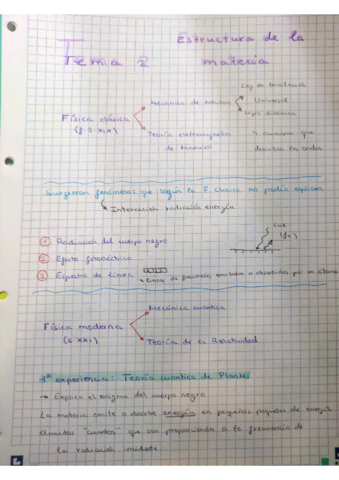 Estructura de la
Tema 2 materia
Ley de Gravitación
Mecánica de Newton Universal
Leyes dinámica
Física clásica
(f. s. XIX)
Teoría electromagnética → ecuaciones que
de Maxwell describen las ondas
Surgieron fenómenos que según la F. clásica no podía explicar
Interacción radiación energía
1 Radiación del cuerpo negro
2 Efecto fotoeléctrico
3 Espectro de línea
Mecánica cuántica
Física moderna
(s. XXI)
Teoría de la Relatividad
1ª experiencia: Teoría cuántica de Planck
→ Explica el enigma del cuerpo negro.
La materia emite o absorbe energía en pequeños paquetes de energía
llamados "cuantos" que son proporcionales a la frecuencia de
la radiación